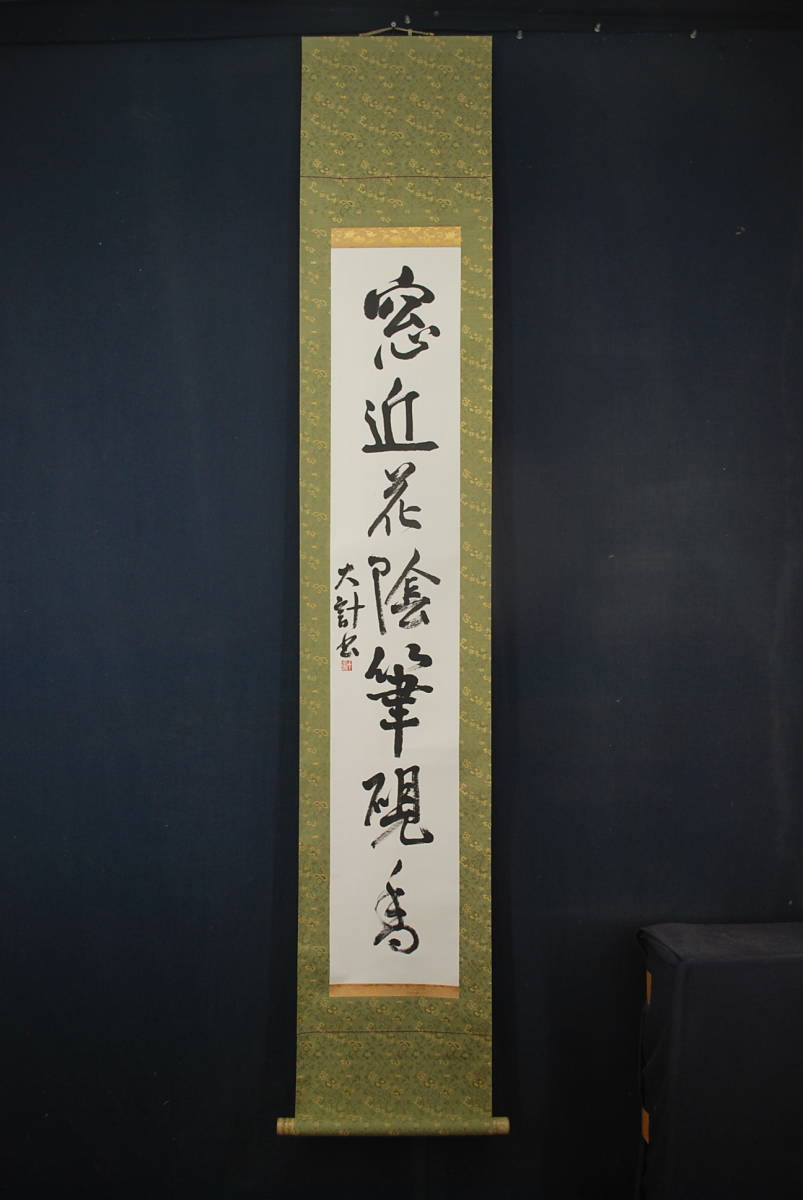 窓近花陰筆硯香
大計書